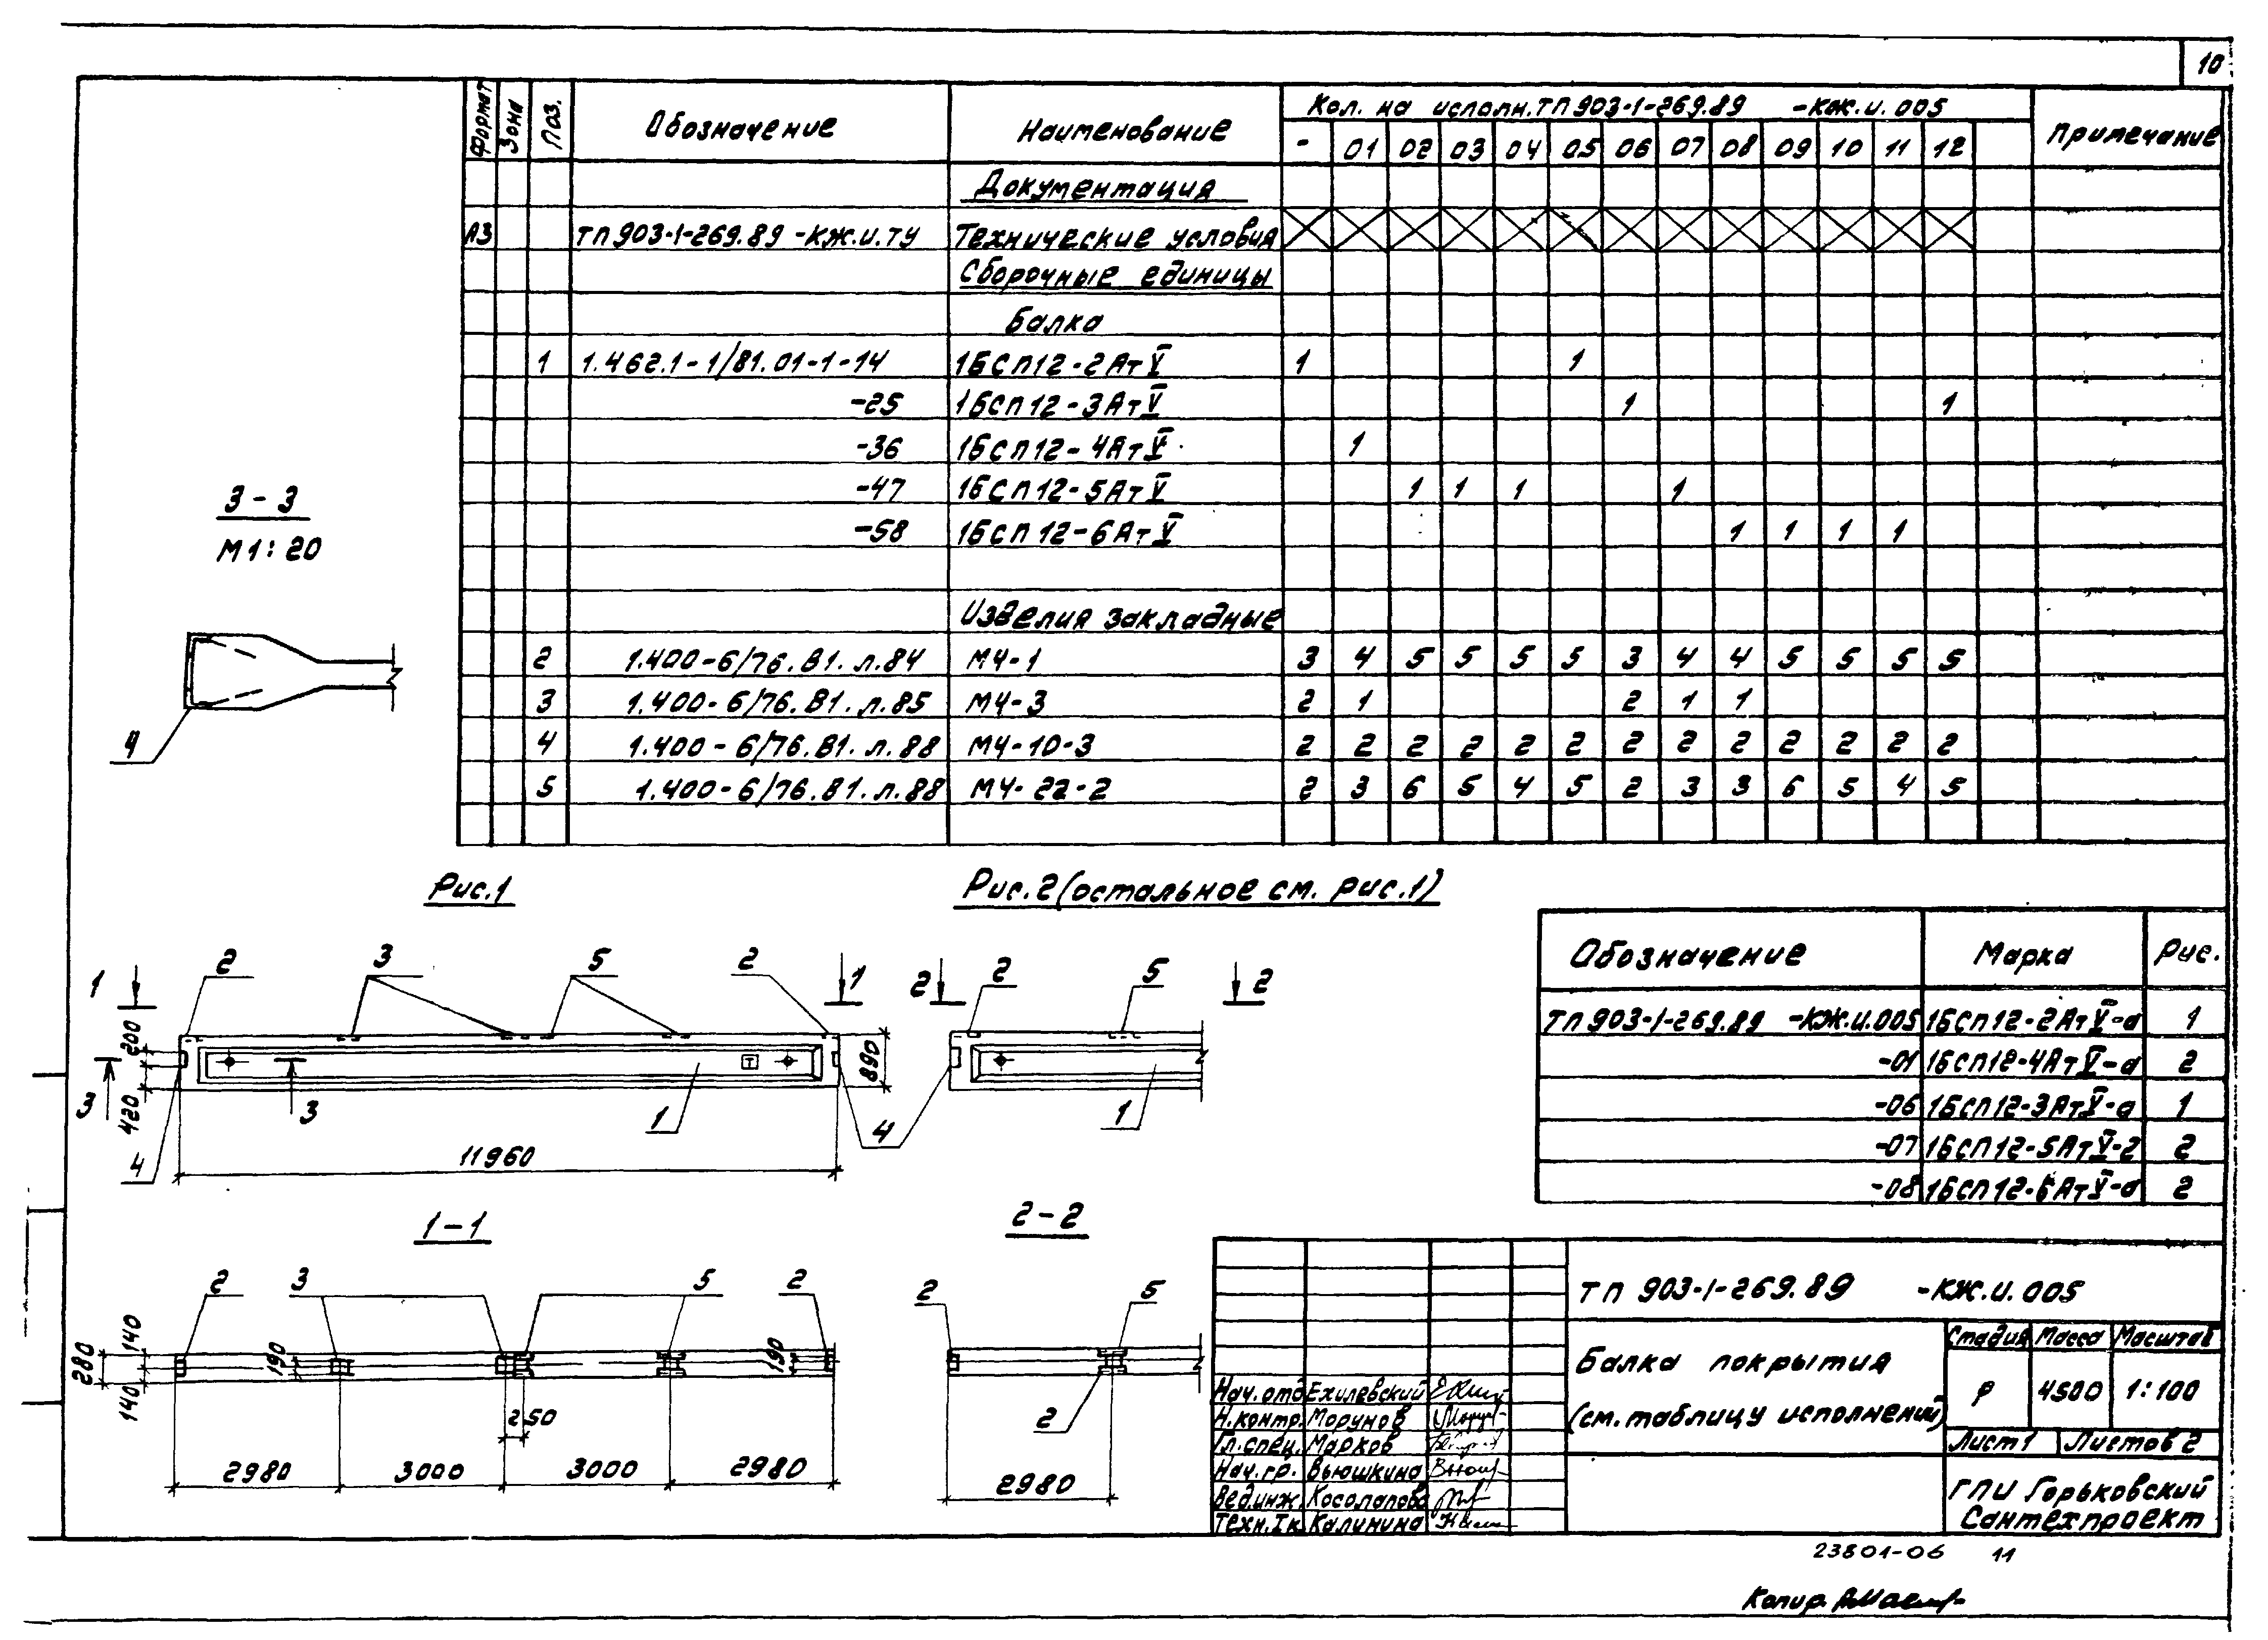 10
Формат Зона Поз. Обозначение Наименование Кол. на исполн. ТП 903-1-269.89 -КЖ.И.005 Примечание
- 01 02 03 04 05 06 07 08 09 10 11 12
Документация
А3 ТП 903-1-269.89 -КЖ.И.ТУ Технические условия
Сборочные единицы
Балка
1 1.462.1-1/81.01-1-14 1БСП12-2АтV 1 1
-25 1БСП12-3АтV 1 1
-36 1БСП12-4АтV 1
-47 1БСП12-5АтV 1 1 1 1
-58 1БСП12-6АтV 1 1 1 1
Изделия закладные
2 1.400-6/76.В1.л.84 М4-1 3 4 5 5 5 5 3 4 4 5 5 5 5
3 1.400-6/76.В1.л.85 М4-3 2 1 2 1 1
4 1.400-6/76.В1.л.88 М4-10-3 2 2 2 2 2 2 2 2 2 2 2 2 2
5 1.400-6/76.В1.л.88 М4-22-2 2 3 6 5 4 5 2 3 3 6 5 4 5
3-3
М1:20
4
Рис.1
1 2 3 5 2 1
200
420
890
3 3
4 1 4
Т
11960
Рис.2 (остальное см. рис.1)
2 2 5 2
1
1-1
2 3 5 2
280 140 140 190 190
250
2980 3000 3000 2980
2-2
2 5
2
2980
Обозначение Марка Рис.
ТП 903-1-269.89 -КЖ.И.005 1БСП12-2АтV-а 1
-01 1БСП12-4АтV-а 2
-06 1БСП12-3АтV-а 1
-07 1БСП12-5АтV-2 2
-08 1БСП12-6АтV-а 2
ТП 903-1-269.89 -КЖ.И.005
Балка покрытия
(см. таблицу исполнений)
Стадия Масса Масштаб
Р 4500 1:100
Лист 1 Листов 2
ГПИ Горьковский
Сантехпроект
Нач.отд Ехилевский
Н.контр. Морунов
Гл.спец. Марков
Нач.гр. Вьюшкина
Вед.инж. Косолапова
Техн.Iк Калинина
23801-06 11
Копир.